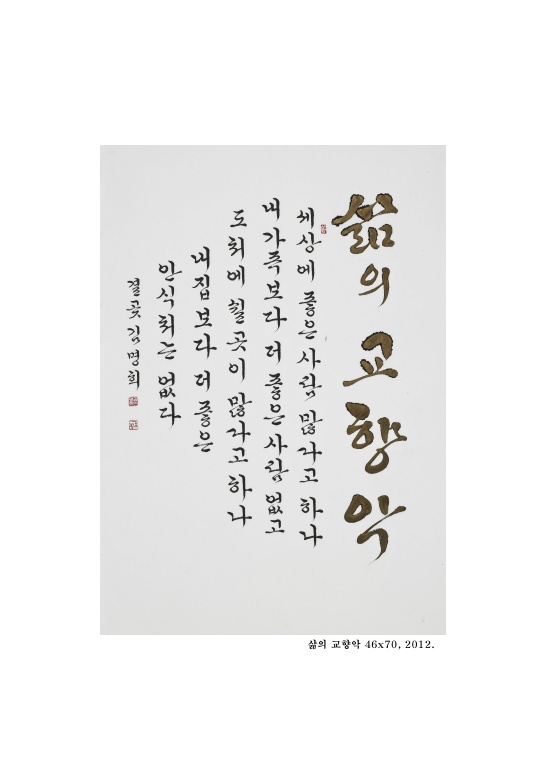 삶의 교향악
세상에 좋은 사람 많다고 하나
내 가족보다 더 좋은 사람 없고
도처에 쉴 곳이 많다고 하나
내 집보다 더 좋은
안식처는 없다
결곳 김명희
삶의 교향악 46x70, 2012.